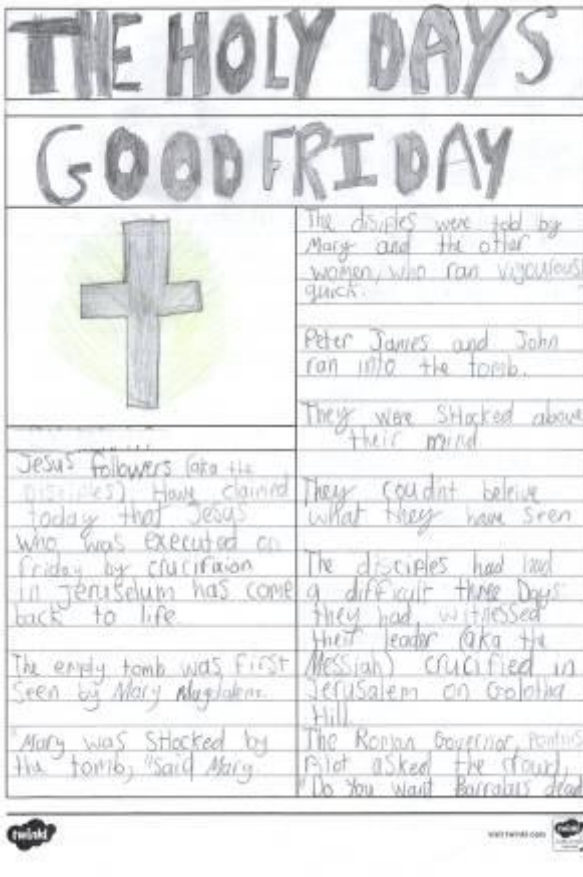 THE HOLY DAYS
GOOD FRIDAY
Jesus followers (aka the
Disciples) Have claimed
today that Jesus
who was executed on
friday by crucifaion
in Jeruselum has come
back to life.
The empty tomb was first
seen by Mary Magdalene.
"Mary was SHocked by
the tomb," said Mary.
The disiples were told by
Mary and the other
women, who ran vigoulous
quick.
Peter James and John
ran into the tomb.
They were SHocked above
their mind
They coudnt beleive
what they have seen.
The disciples had had
a difficult three Days
they had witnessed
their leader (aka the
Messiah) crucified in
Jerusalem on Golotha
Hill.
The Roman Governor, Pontius
Pilot asked the crowd,
"Do You want Barrabus dead
twinkl
visit twinkl.com